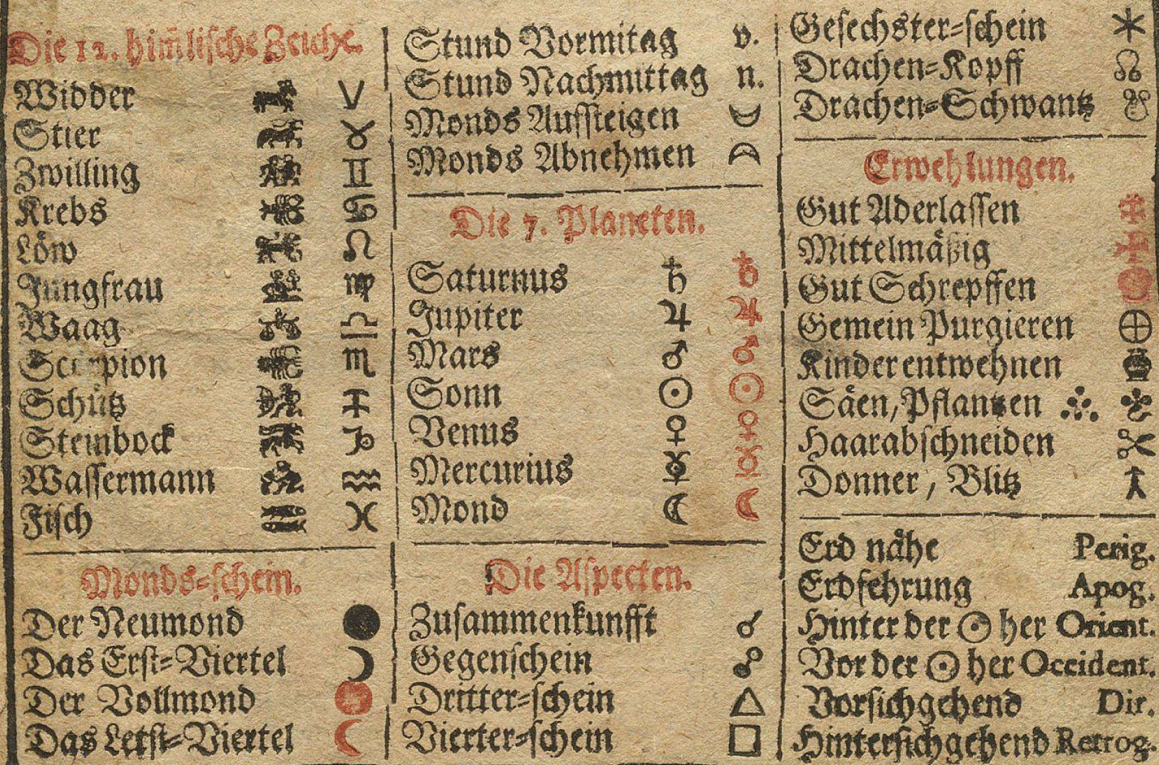 Die 12. him̃lische Zeiche.
Widder ♈
Stier ♉
Zwilling ♊
Krebs ♋
Löw ♌
Jungfrau ♍
Waag ♎
Scorpion ♏
Schütz ♐
Steinbock ♑
Wassermann ♒
Fisch ♓
Monds-schein.
Der Neumond ●
Das Erst-Viertel ☽
Der Vollmond ●
Das Letst-Viertel ☾
Stund Vormitag v.
Stund Nachmittag n.
Monds Auffsteigen
Monds Abnehmen
Die 7. Planeten.
Saturnus ♄ ♄
Jupiter ♃ ♃
Mars ♂ ♂
Sonn ☉ ☉
Venus ♀ ♀
Mercurius ☿ ☿
Mond ☾ ☾
Die Aspecten.
Zusammenkunfft ☌
Gegenschein ☍
Dritter-schein △
Vierter-schein □
Gesechster-schein ⚹
Drachen-Kopff ☊
Drachen-Schwantz ☋
Erwehlungen.
Gut Aderlassen
Mittelmäßig
Gut Schrepffen
Gemein Purgieren ⊕
Kinder entwehnen
Säen, Pflantzen
Haarabschneiden
Donner, Blitz
Erd nähe Perig.
Erdfehrung Apog.
Hinter der ☉ her Orient.
Vor der ☉ her Occident.
Vorsichgehend Dir.
Hintersichgehend Retrog.